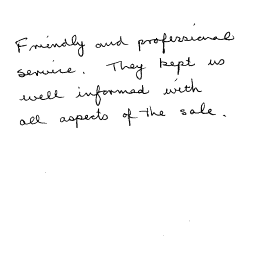 Friendly and professional
service. They kept us
well informed with
all aspects of the sale.